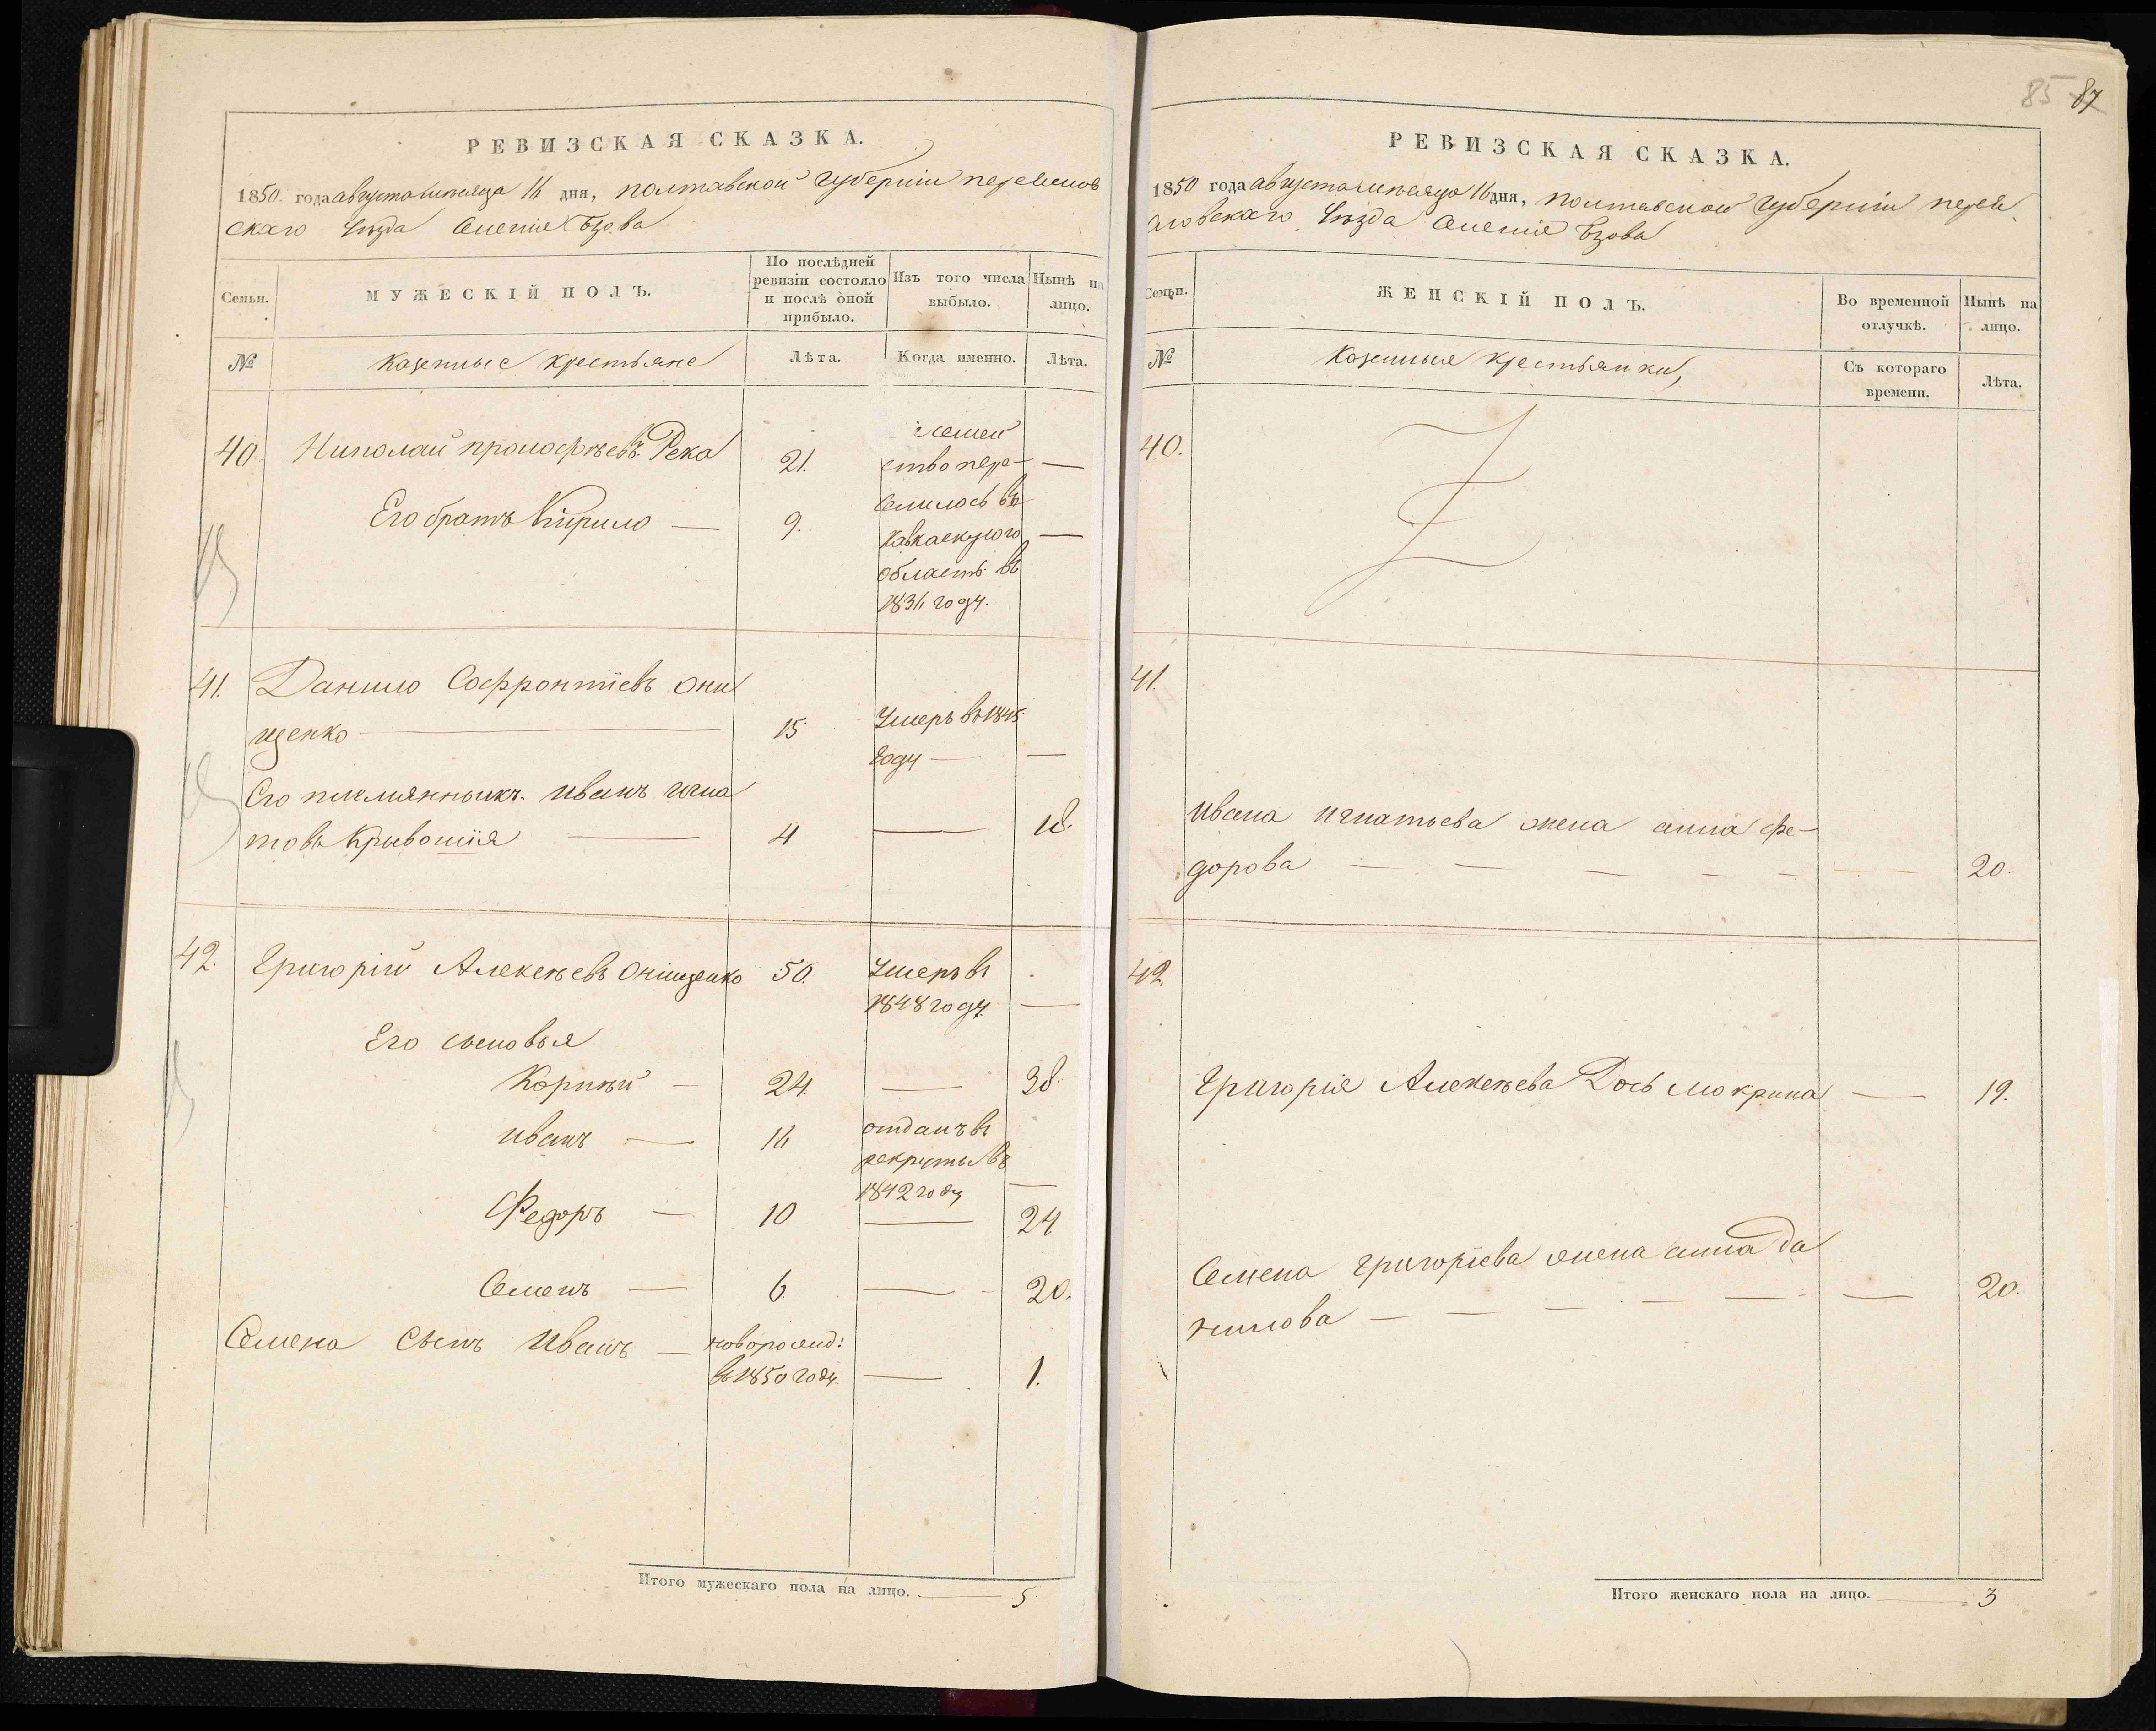 РЕВИЗСКАЯ СКАЗКА.
1850. года августа месяца 16 дня, Полтавской Губерніи переяслов
скаго Уѣзда Селеніе Бзова
Семьи.
МУЖЕСКІЙ ПОЛЪ.
По послѣдней ревизіи состояло и послѣ оной прибыло.
Изъ того числа выбыло.
Нынѣ на лицо.
№
Казенные Крестьяне
Лѣта.
Когда именно.
Лѣта.
40. Николай прокофѣевъ Река 21. семей
ство пере- —
селилось въ
Его братъ Кирило — 9. Кавказскую —
область въ
1836 году.
41. Данило Софронтіевъ Они
щенко — 15. Умеръ въ 1845
году — —
Его племянникъ Иванъ Игна
товъ Кривошія — 4 — 18.
42. Григорій Алексѣевъ Онищенко 50. Умеръ въ
1848 году. —
Его сыновья
Корнѣй — 24. — 38.
Иванъ — 16 отданъ въ
рекруты въ
1842 году —
Федоръ — 10 — 24
Семенъ — 6 — 20.
Семена Сынъ Иванъ — новорожд:
въ 1850 году. — 1.
Итого мужескаго пола на лицо. — 5.
85 87
РЕВИЗСКАЯ СКАЗКА.
1850 года августа месяца 16 дня, Полтавской Губерніи перея
словскаго Уѣзда Селеніе Бзова
Семьи.
ЖЕНСКІЙ ПОЛЪ.
Во временной отлучкѣ.
Нынѣ на лицо.
№
Казенныя Крестьянки,
Съ котораго времени.
Лѣта.
40.
41.
Ивана Игнатьева жена анна фе-
дорова — — — — — — — 20.
42.
Григорія Алексѣева Дочь мокрина — 19.
Семена григоріева жена анна да
нилова — — — — — — 20.
Итого женскаго пола на лицо. — 3